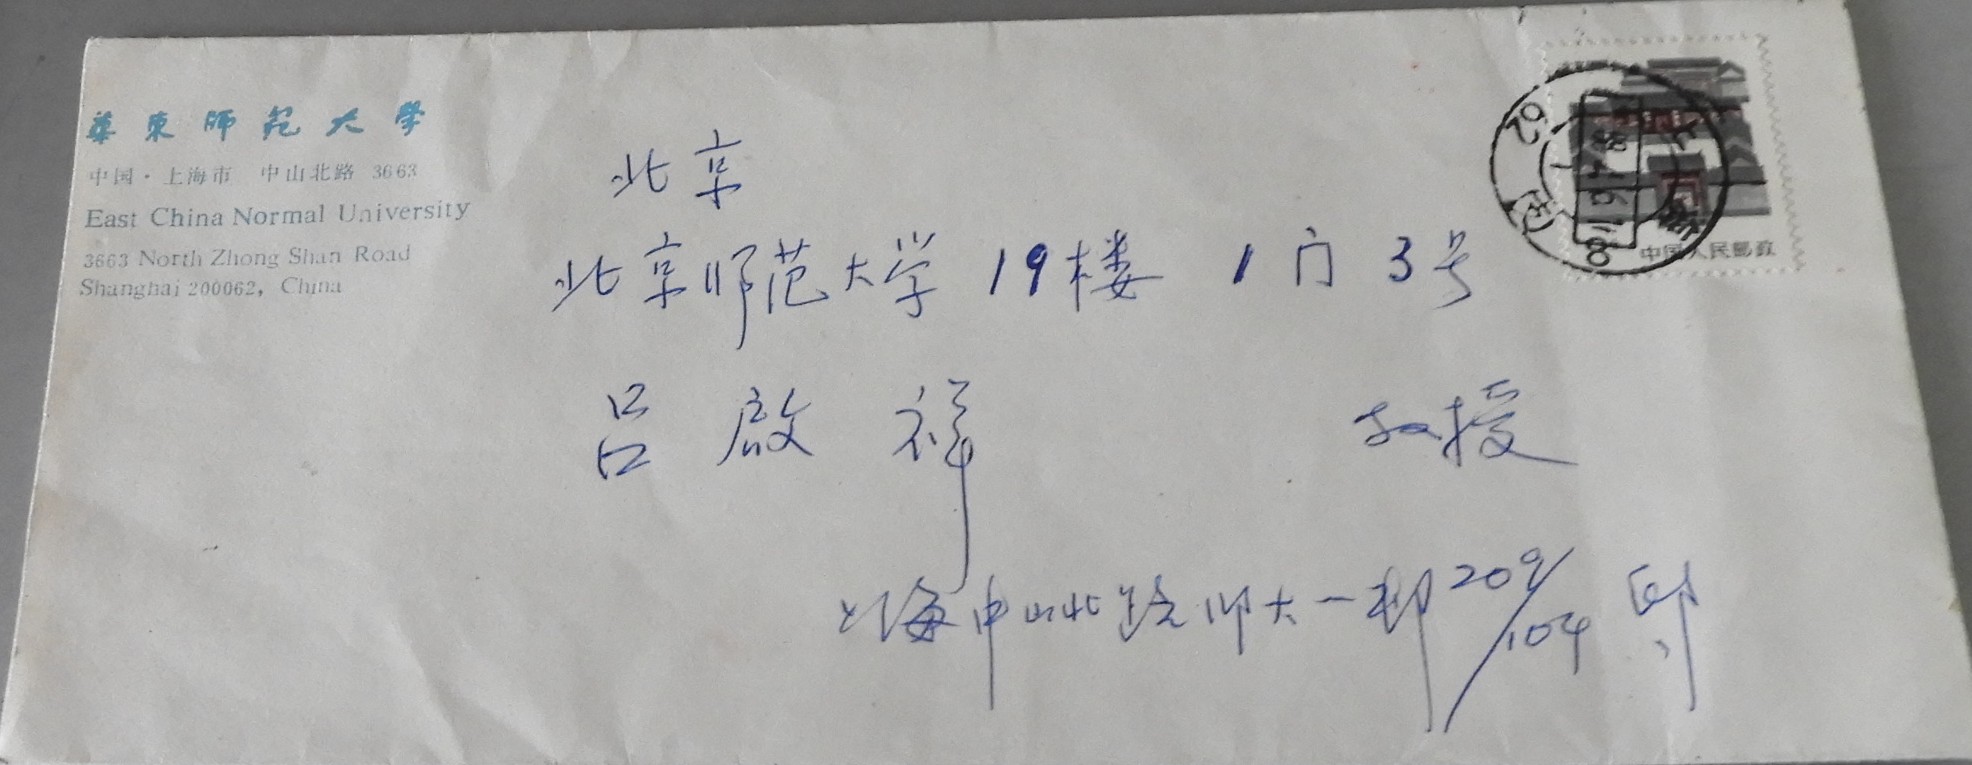 華東師範大學
中国·上海市 中山北路 3663
East China Normal University
3663 North Zhong Shan Road
Shanghai 200062, China
中国人民邮政
北京
北京师范大学 19楼 1门 3号
吕啟祥 教授
上海中山北路师大一村 209/104